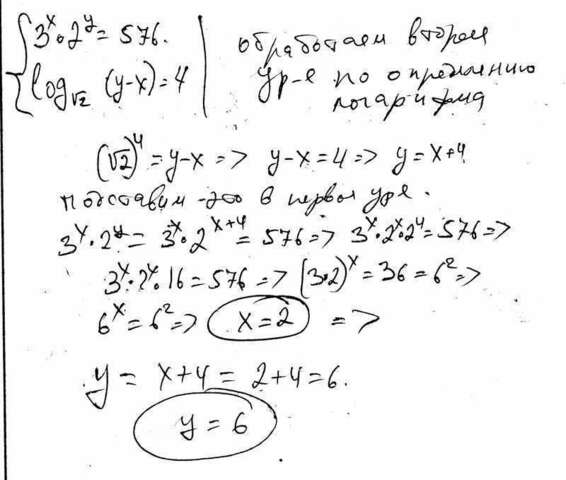 3^x·2^y = 576.
log_√2 (y-x) = 4
обработаем второе
ур-е по определению
логарифма
(√2)^4 = y-x => y-x=4 => y=x+4
подставим это в первое ур-е.
3^x·2^y = 3^x·2^(x+4) = 576 => 3^x·2^x·2^4 = 576 =>
3^x·2^x·16 = 576 => (3·2)^x = 36 = 6^2 =>
6^x = 6^2 => x=2 =>
y = x+4 = 2+4 = 6.
y = 6